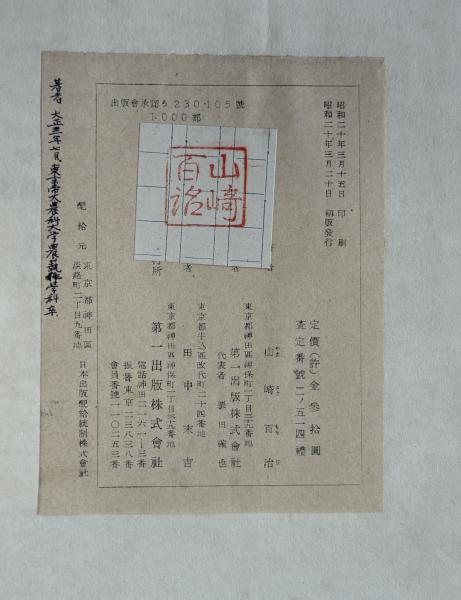 出版會承認い230・105號
1,000部
昭和二十年三月十五日 印刷
昭和二十年三月二十日 初版發行
山崎百治
定價(許)金參拾圓
査定番號 二ノ五一四 禮
山崎百治
東京都神田區神保町二丁目三九番地
第一出版株式會社
代表者
東京都牛込區改代町二十四番地
田中末吉
東京都神田區神保町二丁目三九番地
第一出版株式會社
電話神田二二六一―三番
振替東京二三八三八番
會員番號一一〇二五三番
配給元
東京都神田區淡路町二丁目九番地
日本出版配給統制株式會社
著者 大正三年七月東京帝大農科大学農藝化学科卒